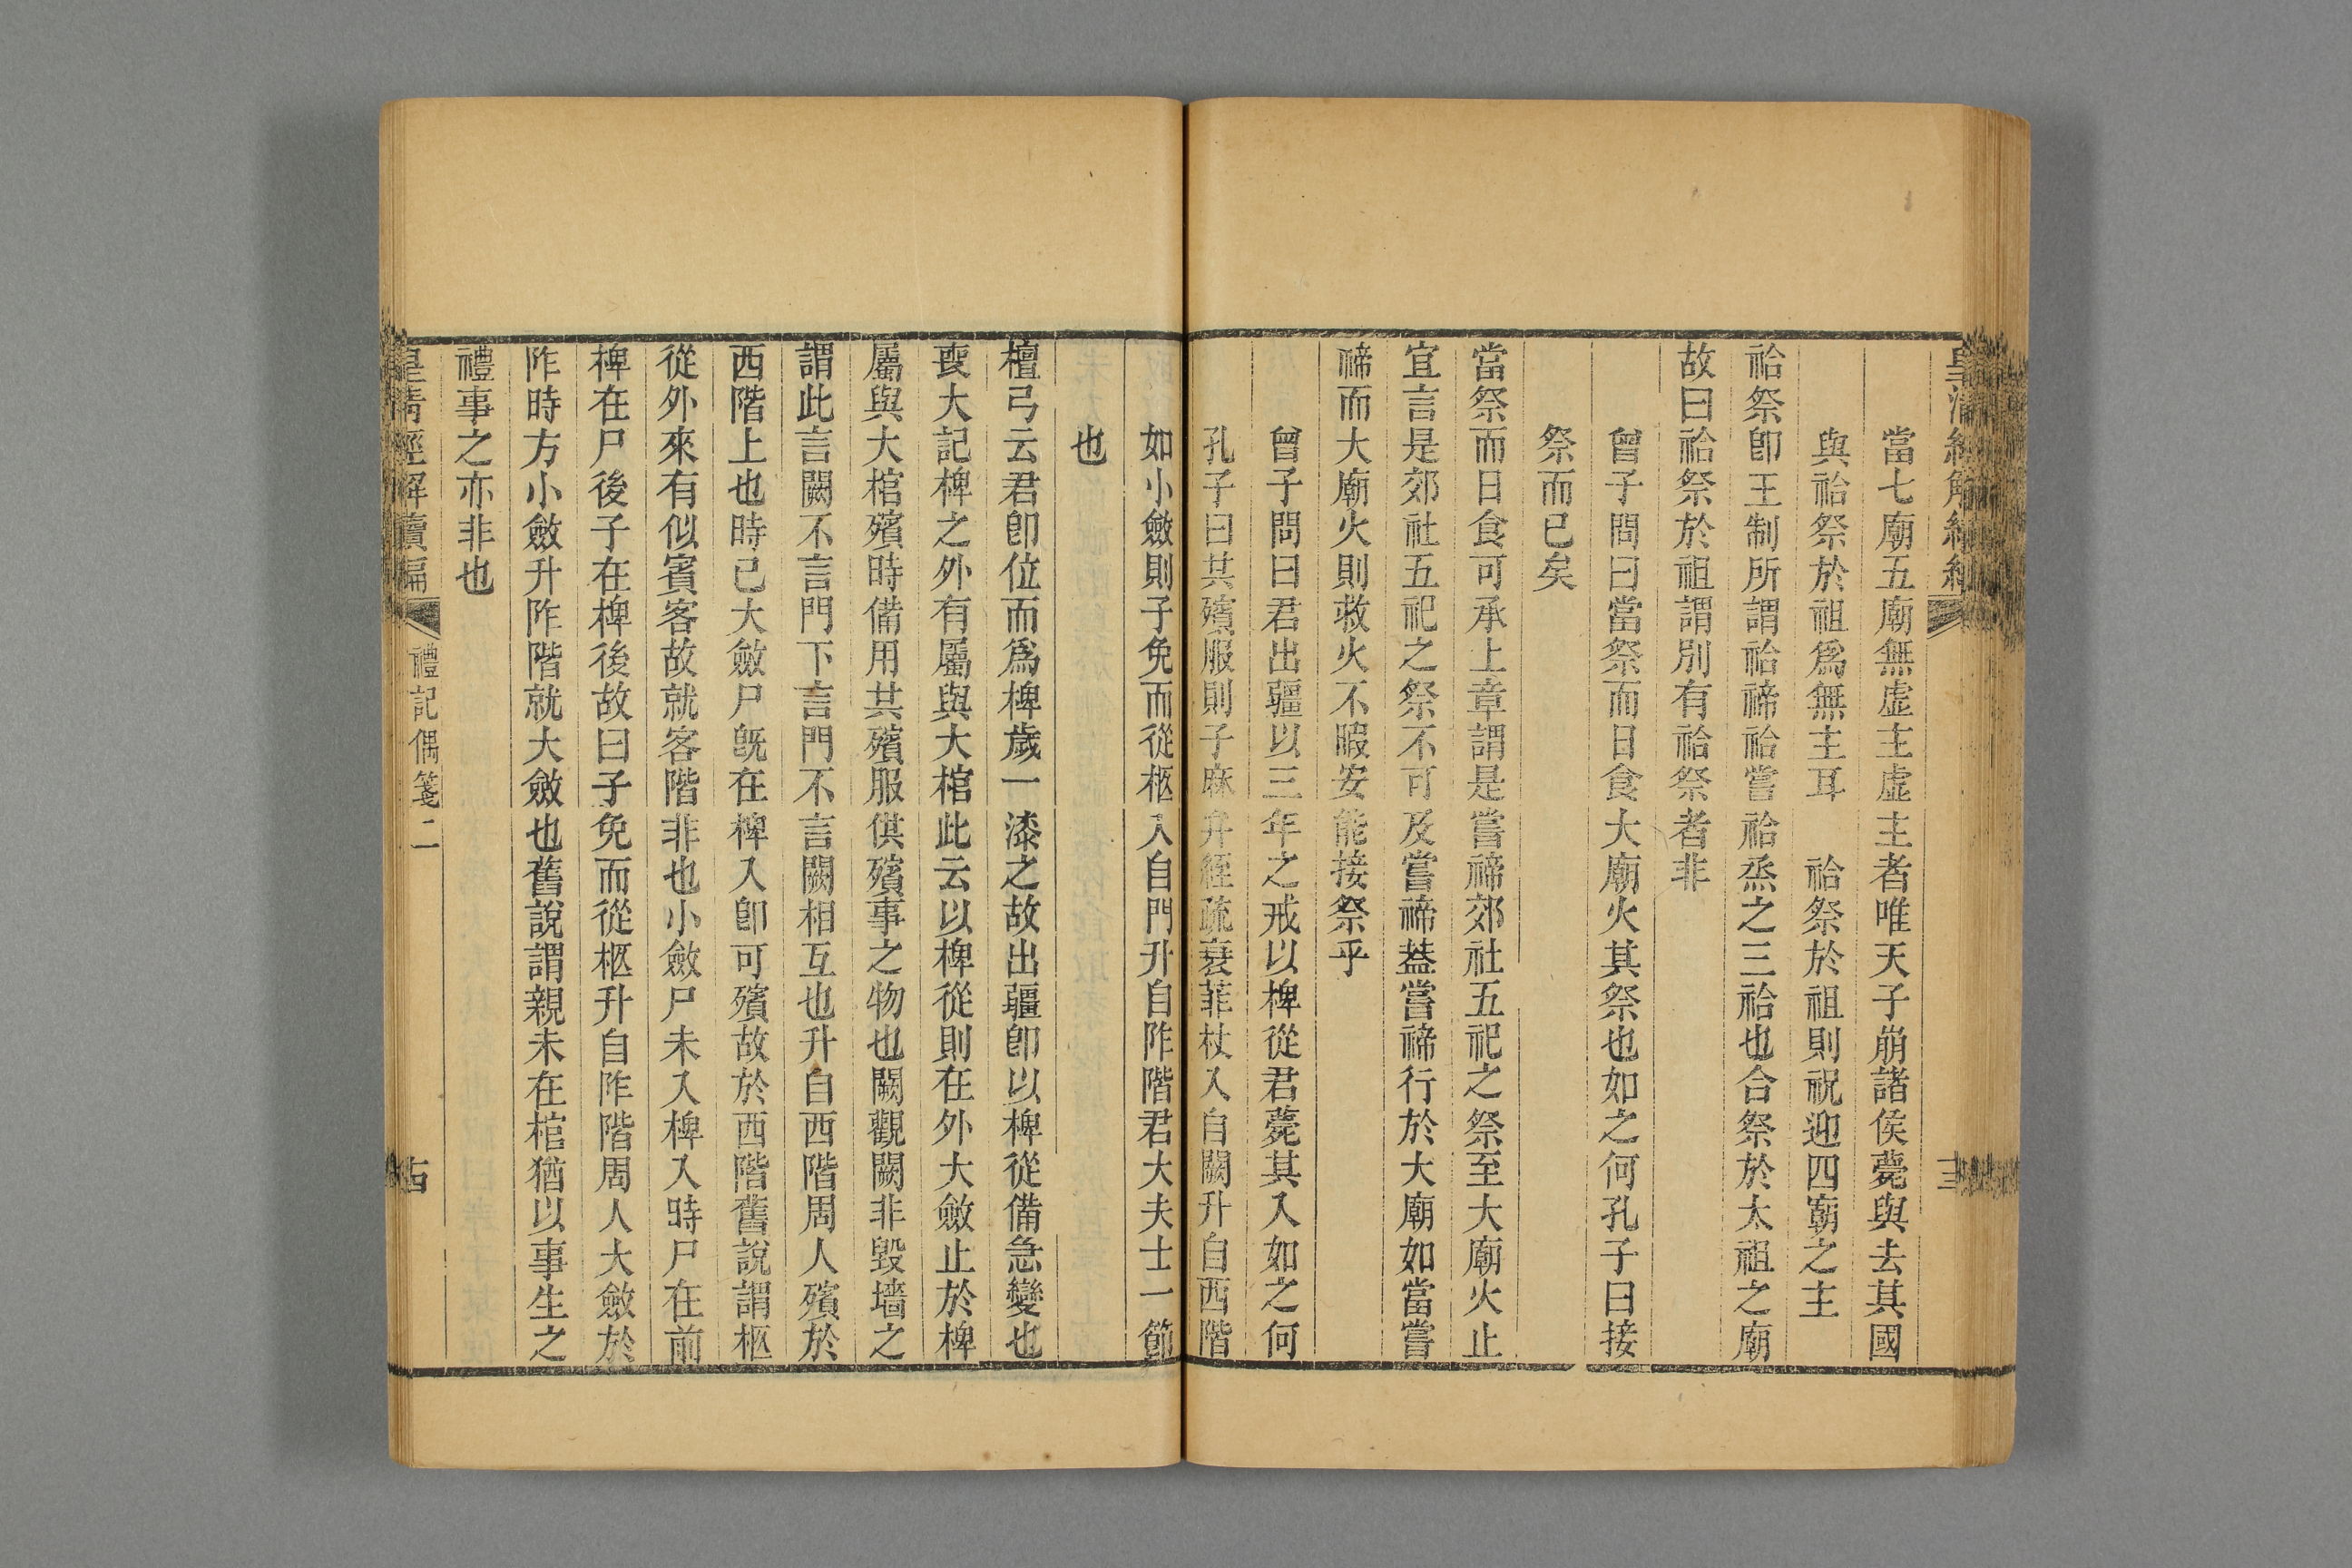 當七廟五廟無虛主虛主者唯天子崩諸侯薨與去其國
與祫祭於祖爲無主耳　祫祭於祖則祝迎四廟之主
祫祭卽王制所謂祫禘祫嘗祫烝之三祫也合祭於太祖之廟
故曰祫祭於祖謂別有祫祭者非
曾子問曰當祭而日食大廟火其祭也如之何孔子曰接
祭而已矣
當祭而日食可承上章謂是嘗禘郊社五祀之祭至大廟火止
宜言是郊社五祀之祭不可及嘗禘葢嘗禘行於大廟如當嘗
禘而大廟火則救火不暇安能接祭乎
曾子問曰君出疆以三年之戒以椑從君薨其入如之何
孔子曰共殯服則子麻弁絰疏衰菲杖入自闕升自西階
如小斂則子免而從柩入自門升自阼階君大夫士一節
也
檀弓云君卽位而爲椑歲一漆之故出疆卽以椑從備急變也
喪大記椑之外有屬與大棺此云以椑從則在外大斂止於椑
屬與大棺殯時備用其殯服供殯事之物也闕觀闕非毀墻之
謂此言闕不言門下言門不言闕相互也升自西階周人殯於
西階上也時已大斂尸旣在椑入卽可殯故於西階舊說謂柩
從外來有似賓客故就客階非也小斂尸未入椑入時尸在前
椑在尸後子在椑後故曰子免而從柩升自阼階周人大斂於
阼時方小斂升阼階就大斂也舊說謂親未在棺猶以事生之
禮事之亦非也
皇淸經解續編
禮記偶箋二
古